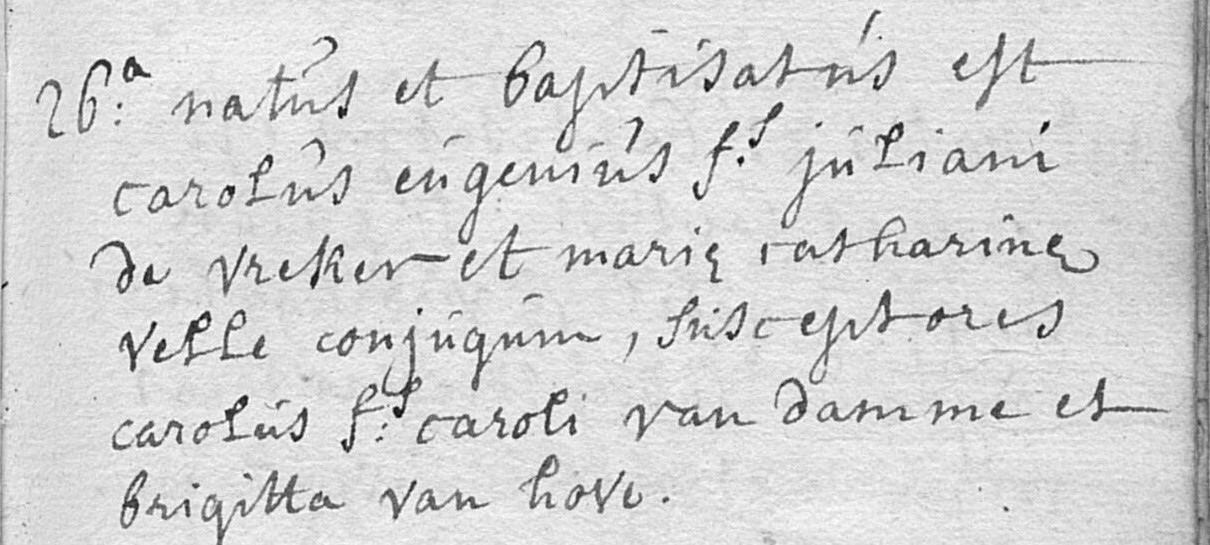 26.a natus et baptisatus est
carolus eugenius f.s juliani
de vreker et marię catharinę
velle conjugum, susceptores
carolus f.s caroli van damme et
brigitta van hove.